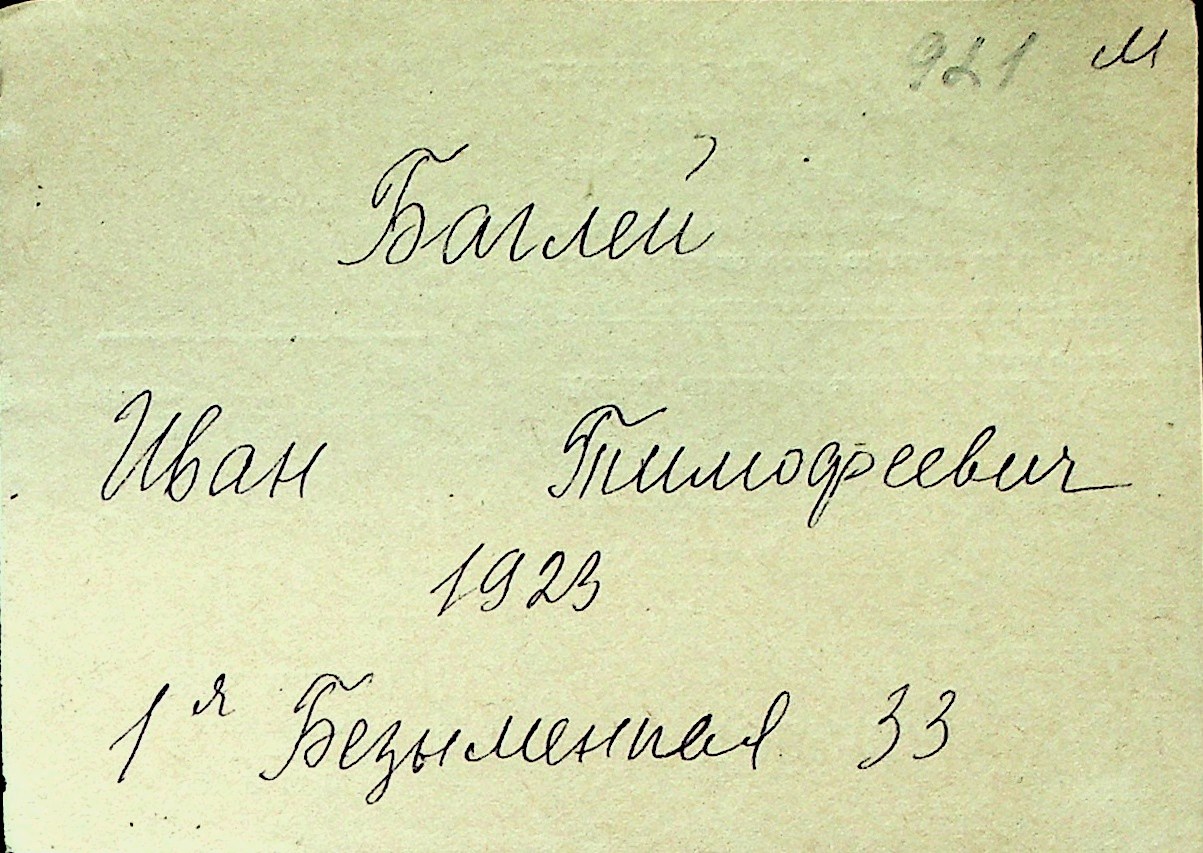 921 м
Баглей
Иван Тимофеевич
1923
1я Безыменная 33